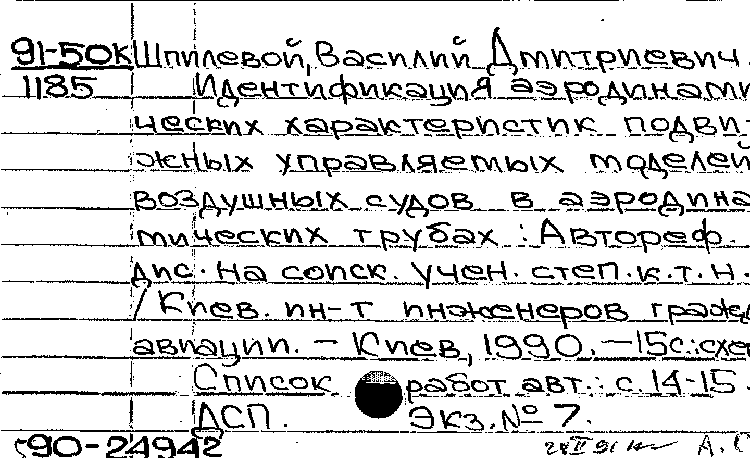 91-50к Шпилевой, Василий Дмитриевич.
1185 Идентификация аэродинами-
ческих характеристик подви-
жных управляемых моделей
воздушных судов в аэродина-
мических трубах : Автореф.
дис. на соиск. учен. степ. к.т.н.
/ Киев. ин-т инженеров гражд.
авиации. – Киев, 1990. – 15с.:схе
Список работ авт.: с. 14-15.
ДСП. Экз. № 7.
90-24942 А. С